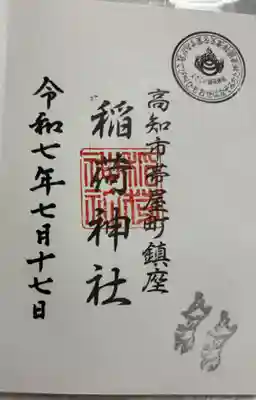 高知市帯屋町鎮座
稲荷神社
令和七年七月十七日